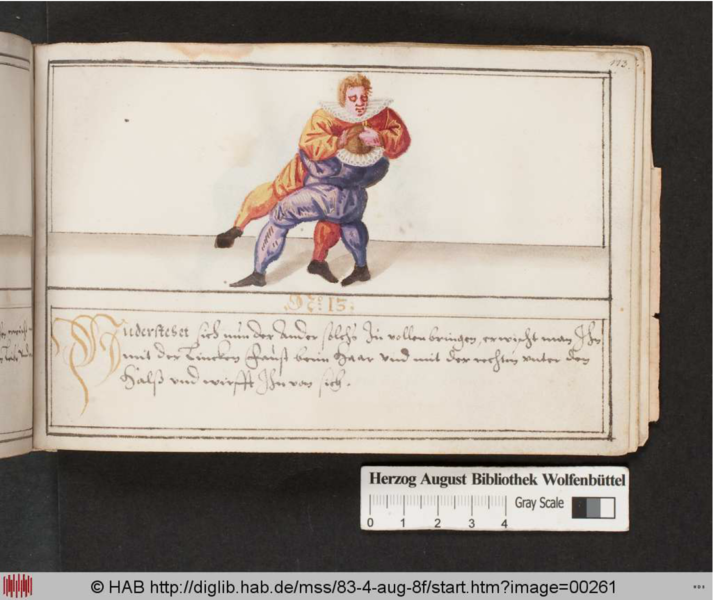 113.
No: 15.
Widersetzet sich nun der ander solchs zu vollenbringen, erwischt man Ihn
mit der Lincken Faust beim Haar vnd mit der rechten vnter den
Halß vnd wirfft Ihn von sich.
Herzog August Bibliothek Wolfenbüttel
Gray Scale
0 1 2 3 4
© HAB http://diglib.hab.de/mss/83-4-aug-8f/start.htm?image=00261